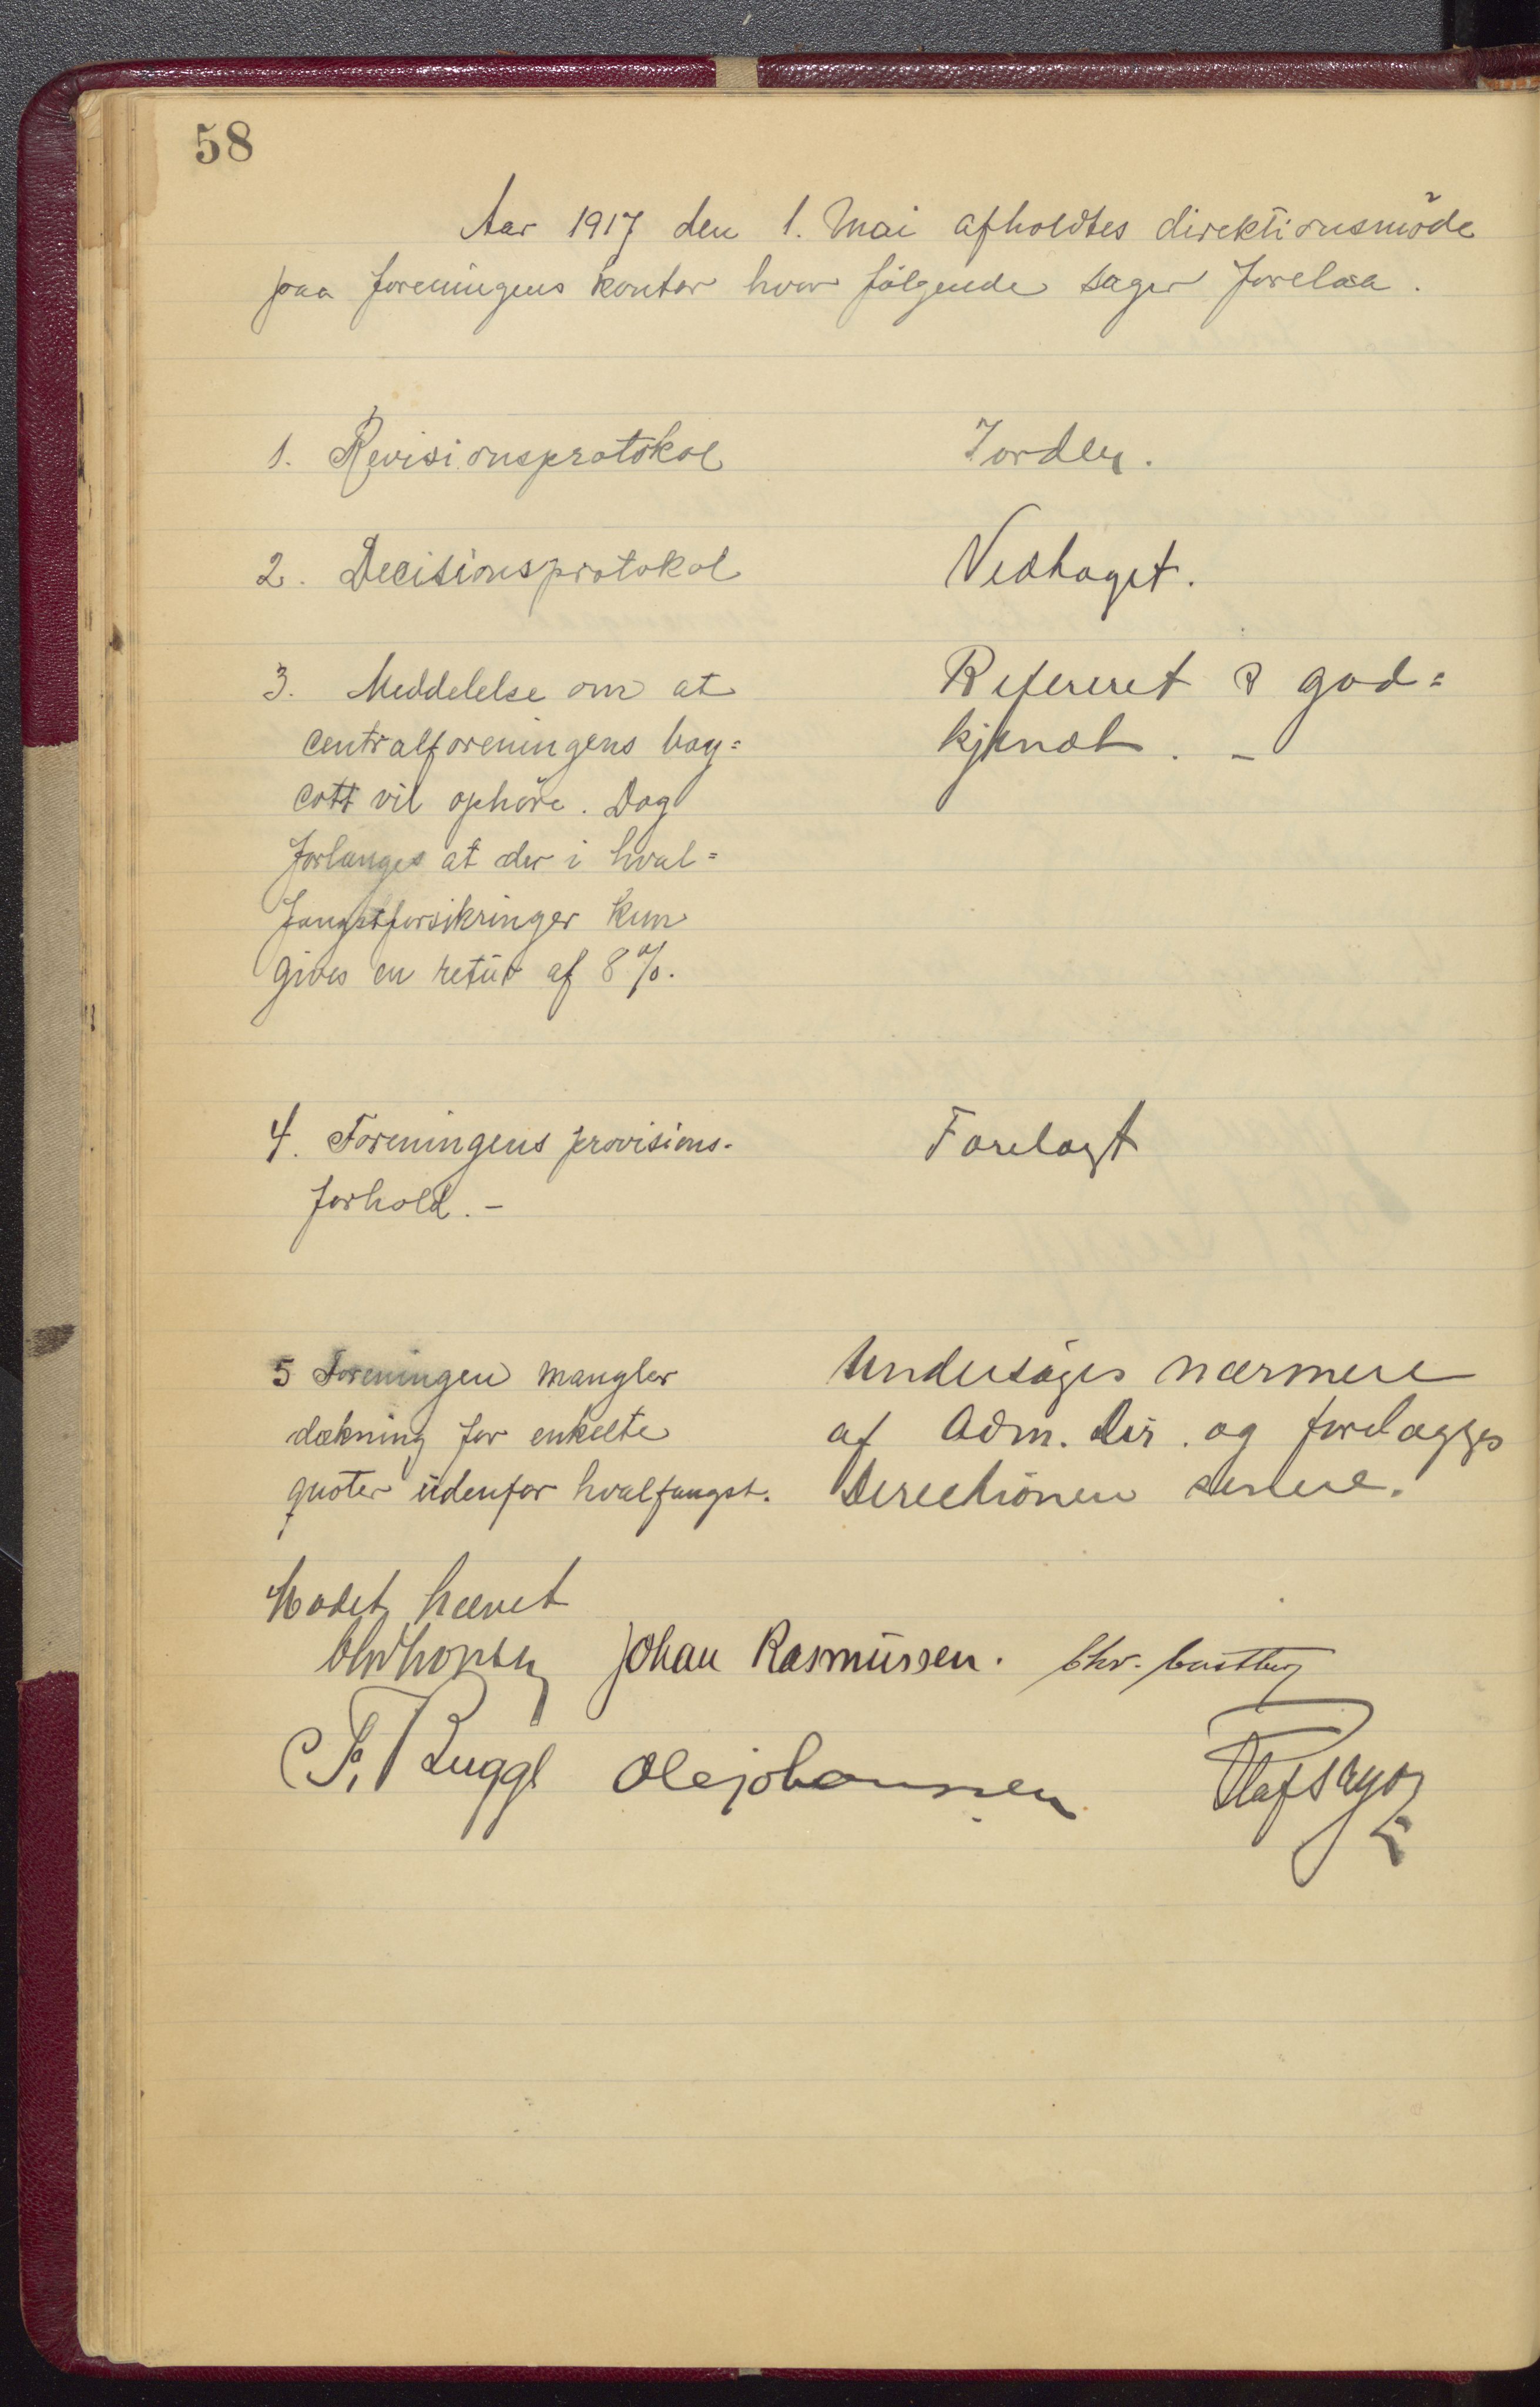 58
Aar 1917 den 1. Mai afholdtes direktionsmöde
paa foreningens kontor hvor følgende sager forelaa.
1. Revisionsprotokol
I orden.
2. Decisionsprotokol
Vedtaget.
3. Meddelelse om at
centralforeningens boy=
cott vil ophöre. Dog
forlanges at der i hval=
fangstforsikringer kun
gives en retur af 8%.
Refereret & god=
kjendt. -
4. Foreningens provisions-
forhold. -
Forelagt
5 Foreningen mangler
dækning for enkelte
quoter udenfor hvalfangst.
Undersøges nærmere
af Adm. Dir. og forelægges
Directionen senere.
Mødet hævet
Johan Rasmussen. Chr.
Bugge Ole Johannessen